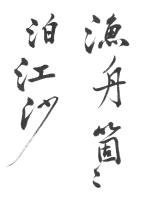 漁舟箇〻
泊江沙